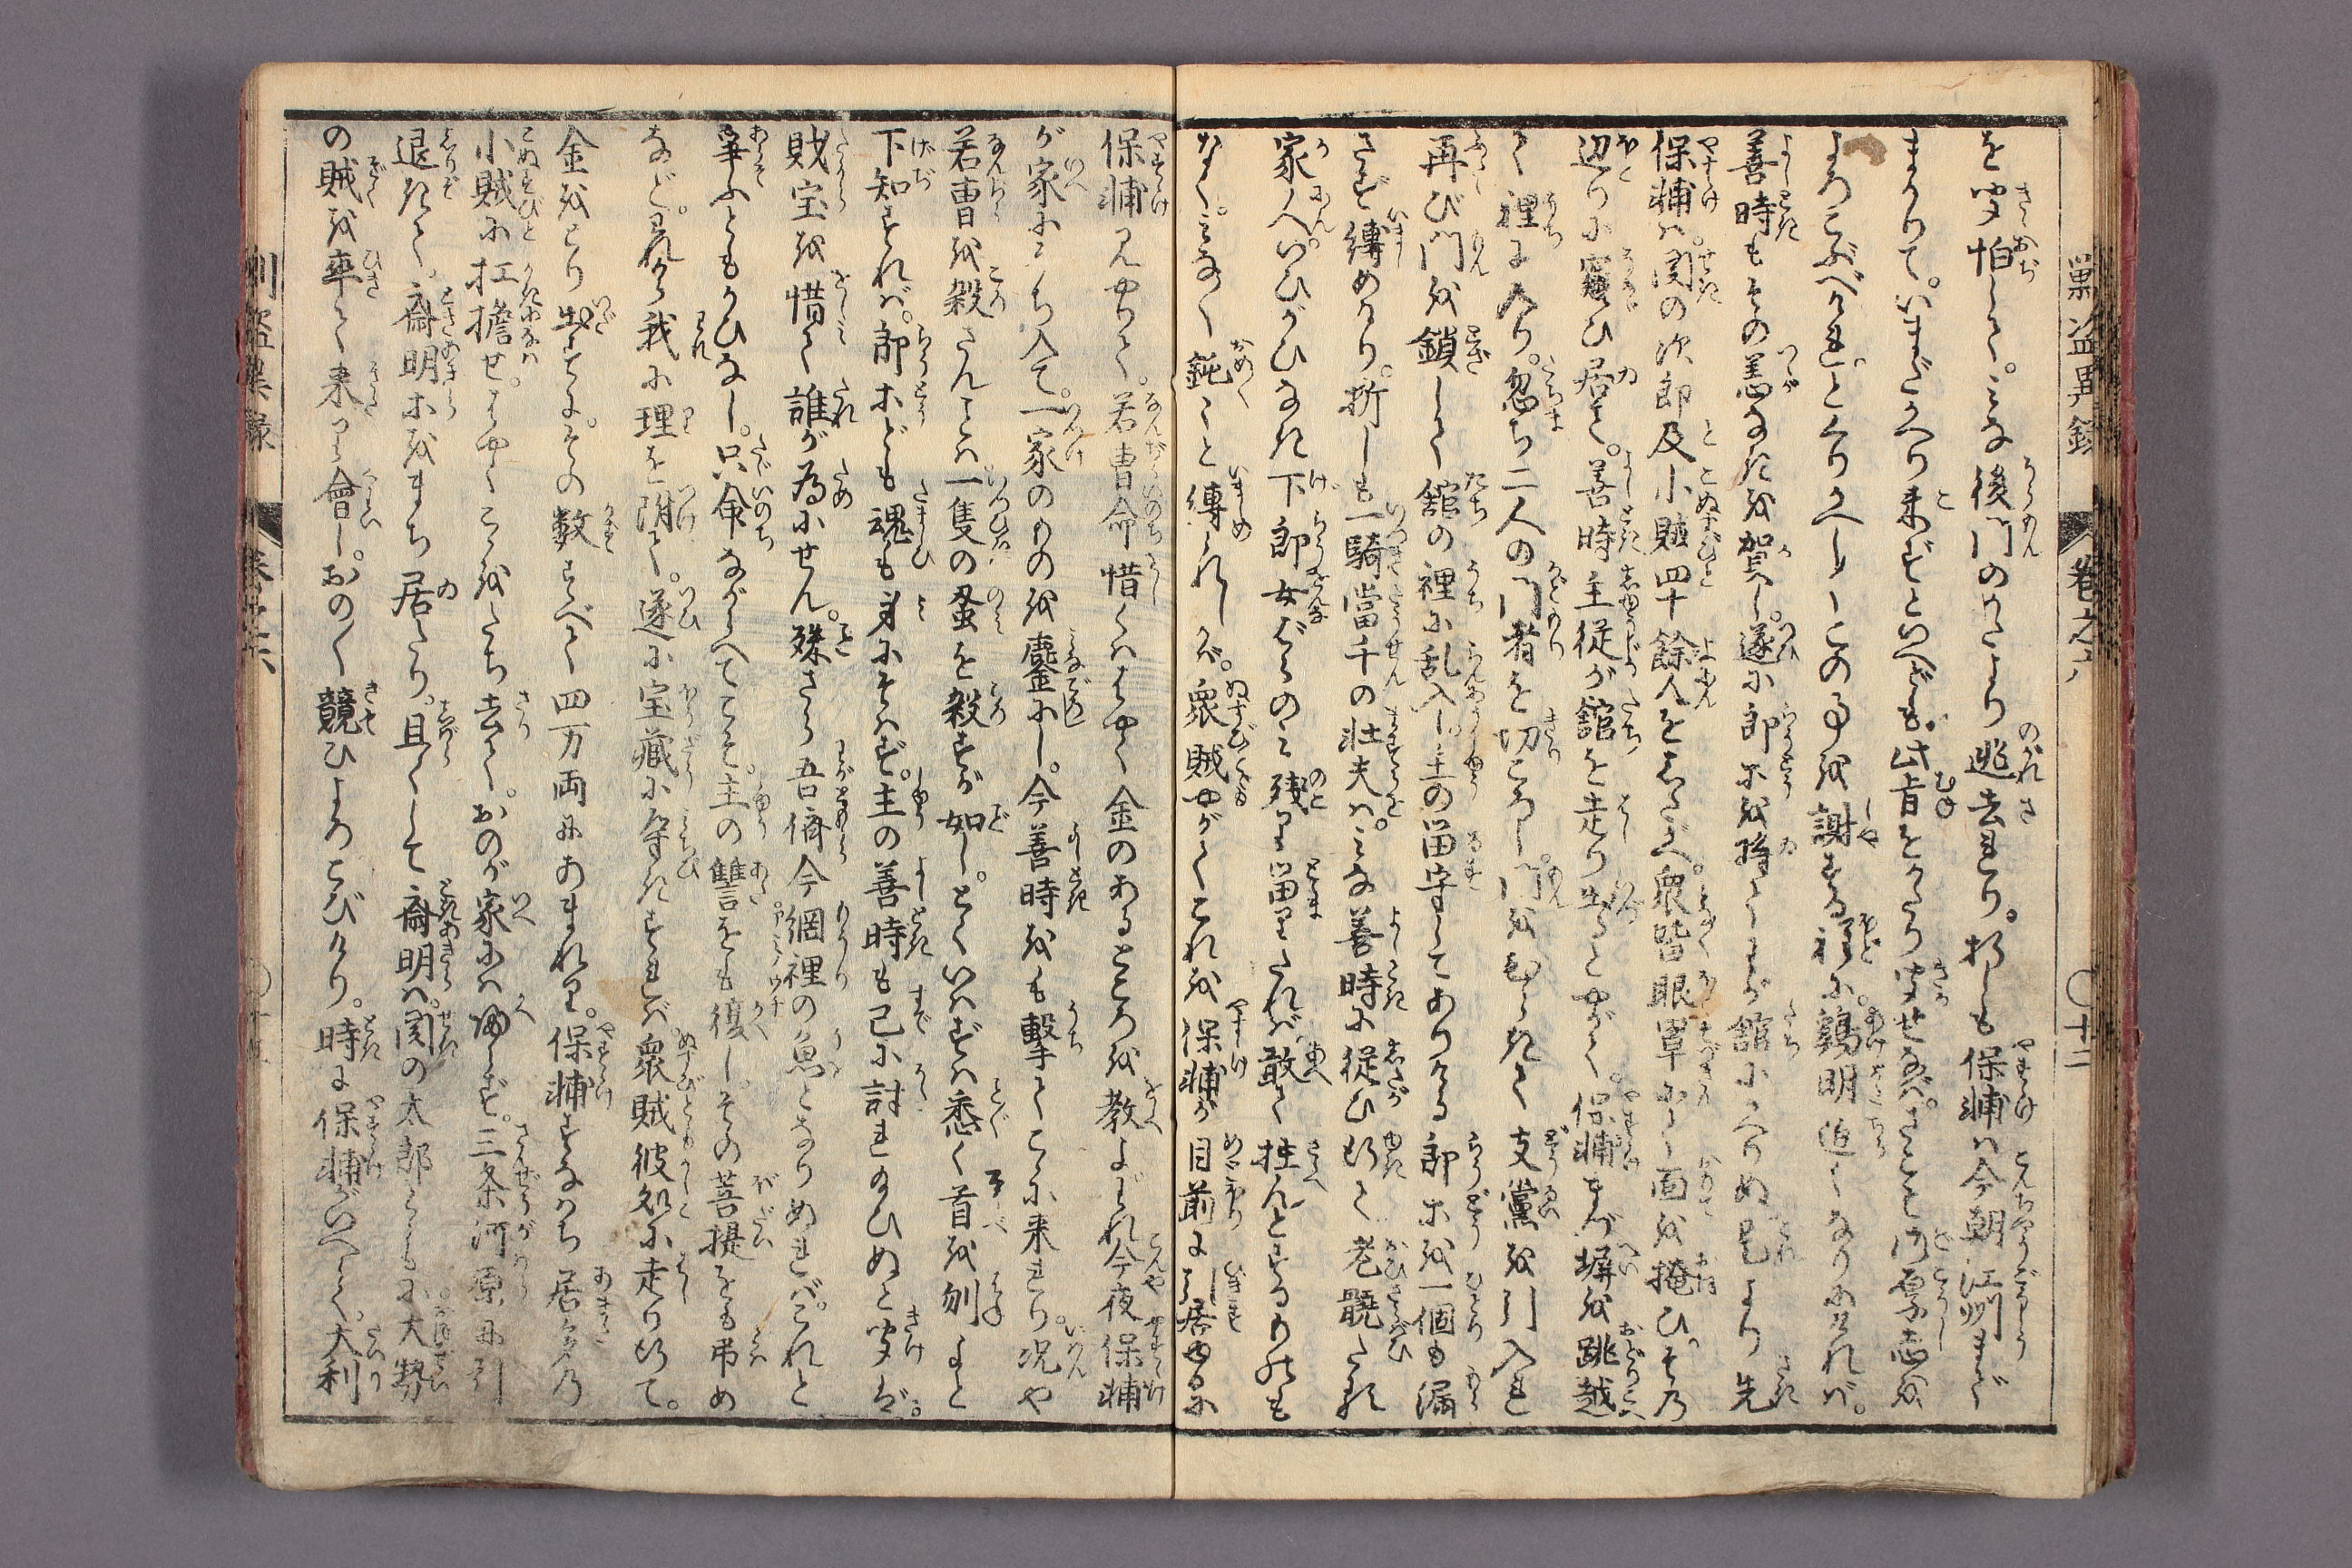 巣盗異録 巻之六 ○十二
を聞怕しく。みな後門のかたより逃去れり。折しも保輔は今朝江州まで
まかりて。いまだかへり来ずといへども。此旨をかたり聞せなば。さこそ御厚志を
よろこぶべけれ。とくりかへし〳〵この事を謝する程に。鶏明近くなりにければ。
善時もその恙なきを賀し。遂に郎等を将てわが館にかへりぬ。是より先
保輔は。関の次郎及小賊四十餘人をしたがへ。衆皆眼罩ふかく面を掩ひ。その
辺りに窺ひ居て。善時主従が館を走り出るとやがて。保輔まづ塀を跳越
て裡に入り。忽ち二人の門者を切ころし。門をひらきて支黨を引入れ
再び門を鎖して舘の裡に乱入し。主の留守してありける郎等を一個も漏
さず縛めけり。折しも一騎當千の壮夫は。みな善時に従ひ行て老髐たる
家人。いひがひなき下郎女ばらのみ残り留りたれば。敢て拄んとするものも
なく。みな〳〵鈍〳〵と縛られしが。衆賊やがてこれを保輔が目前に引居しかば
保輔見やりて。若曹命惜くははやく金のあるところを教よ。われ今夜保輔
が家にうち入て。一家のものを鏖にし。今善時をも撃てこゝに来れり。况や
若曹を殺さんことは一隻の蚤を殺すが如し。とくいはずは悉く首を刎よと
下知すれば。郎等ども魂も身にそはず。主の善時も已に討れ給ひぬと聞けば。
賊宝を惜て誰が為にせん。殊さら吾儕今網裡の魚となりぬれば。これと
争ふともかひなし。只命ながらへてこそ。主の讐をも復し。その菩提をも吊め
など。われから我に理を附て。遂に宝蔵に導きすれば。衆賊彼処に走り行て。
金をとり出すに。その数すべて四万両にあまれり。保輔すなはち居多の
小賊に扛擔せ。はやくこゝをたち去て。おのが家には帰らず。三条河原に引
退きて。齋明等をまち居たり。且くして齋明は。関の太郎とゝもに大勢
の賊を率て来り會し。おの〳〵競ひよろこびけり。時に保輔がいへらく。大利